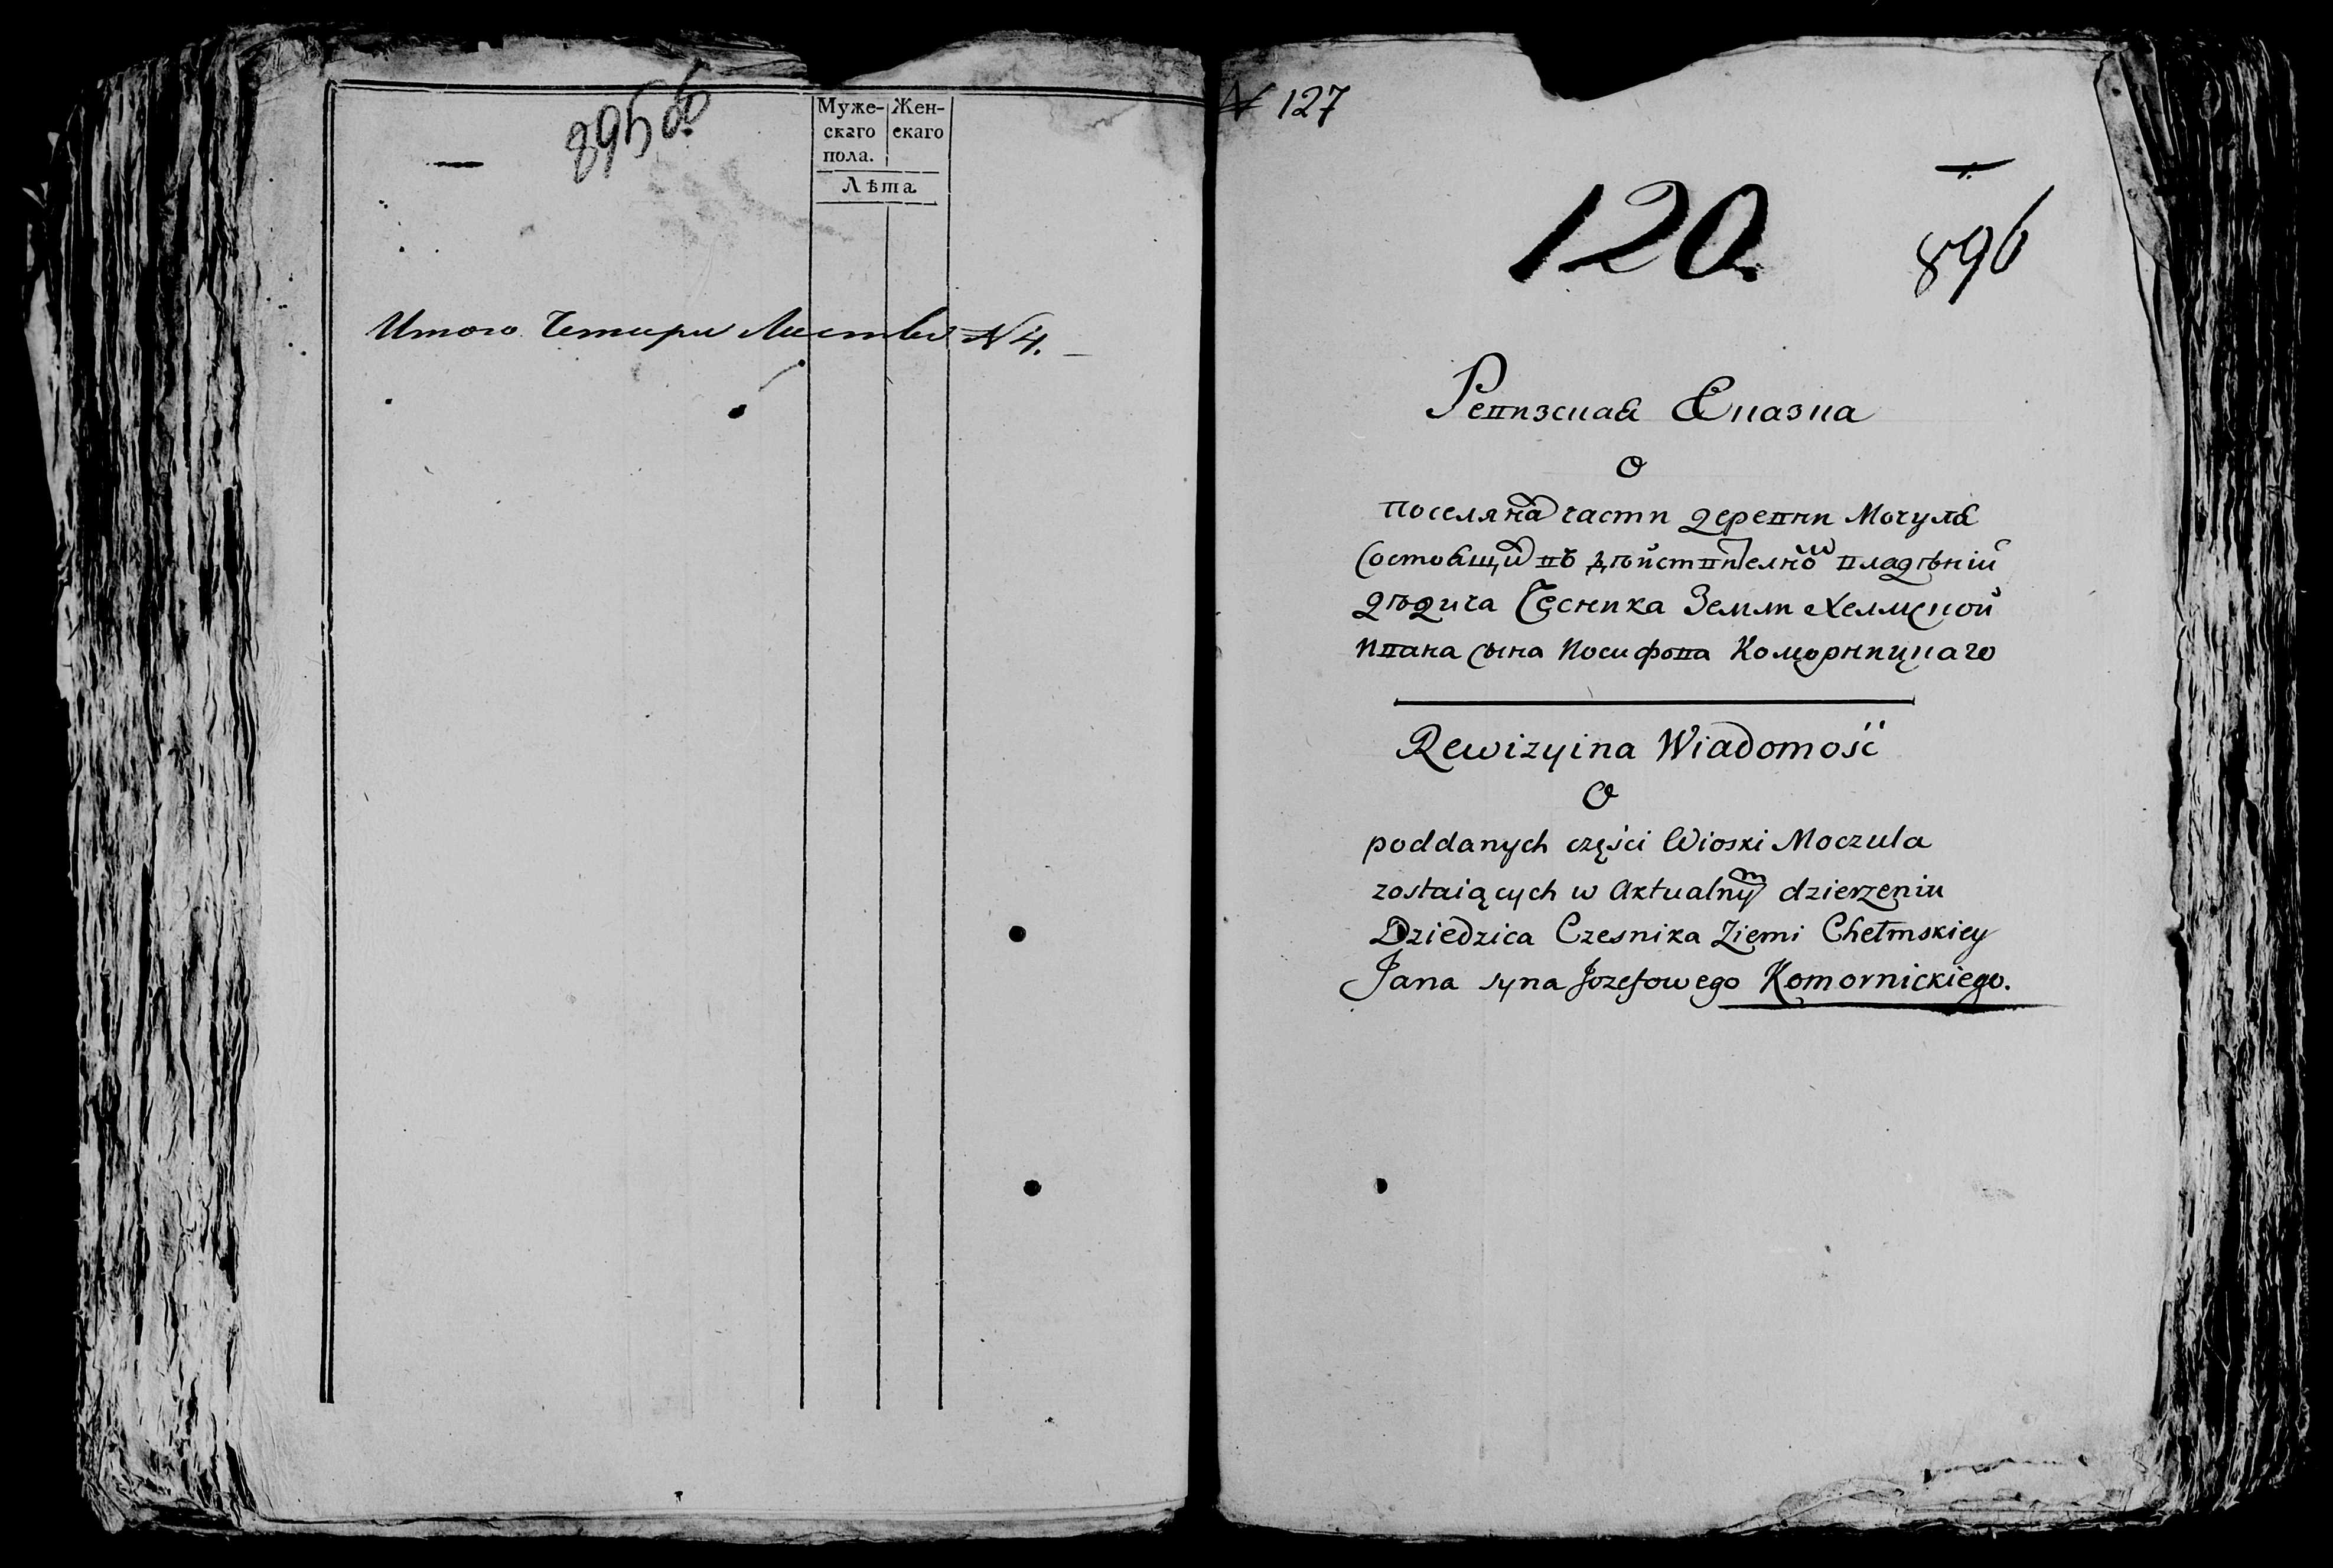 895 об.
Муже- Жен-
скаго скаго
пола.
Лѣта
Итого Четыри Листов N 4.
N 127
120.
896
Ревизская Сказка
О
поселянах части деревни Мочуля
состоящих въ дѣйствителном владѣнии
дѣдича Чесника Земли Хелмской
Ивана сына Иосифова Коморницкаго
Rewizyina Wiadomość
O
poddanych części Wioski Moczula
zostaiących w Aktualnym dzierzeniu
Dziedzica Czesnika Ziemi Chełmskiey
Jana syna Jozefowego Komornickiego.